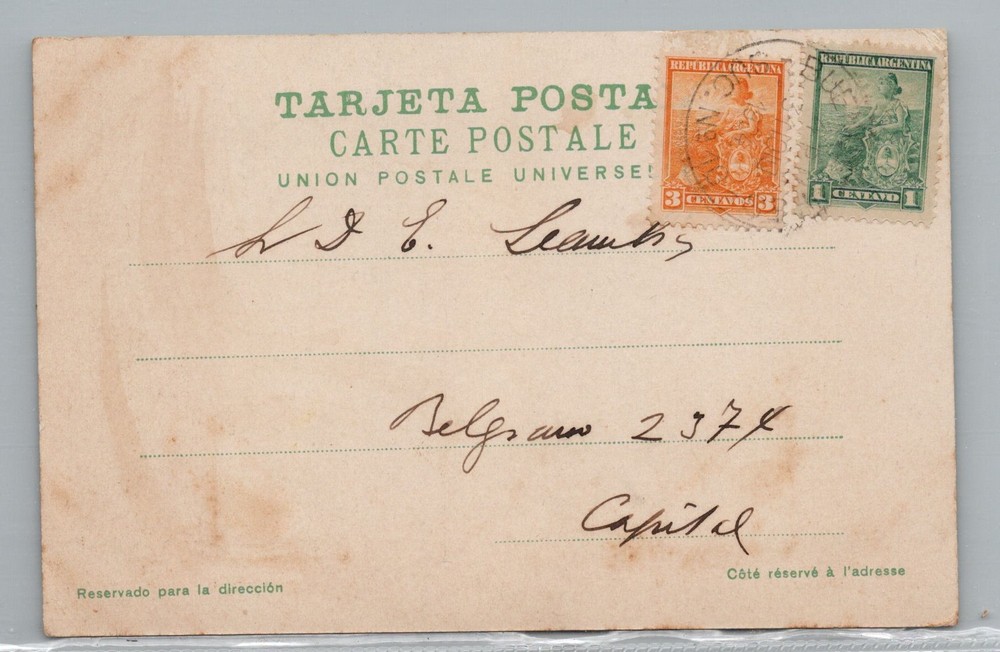 TARJETA POSTA
CARTE POSTALE
UNION POSTALE UNIVERSE
REPUBLICA ARGENTINA
3 CENTAVOS 3
REPUBLICA ARGENTINA
1 CENTAVO 1
BUE
D E.
Belgrano 2374
Capital
Reservado para la dirección
Côté réservé à l'adresse